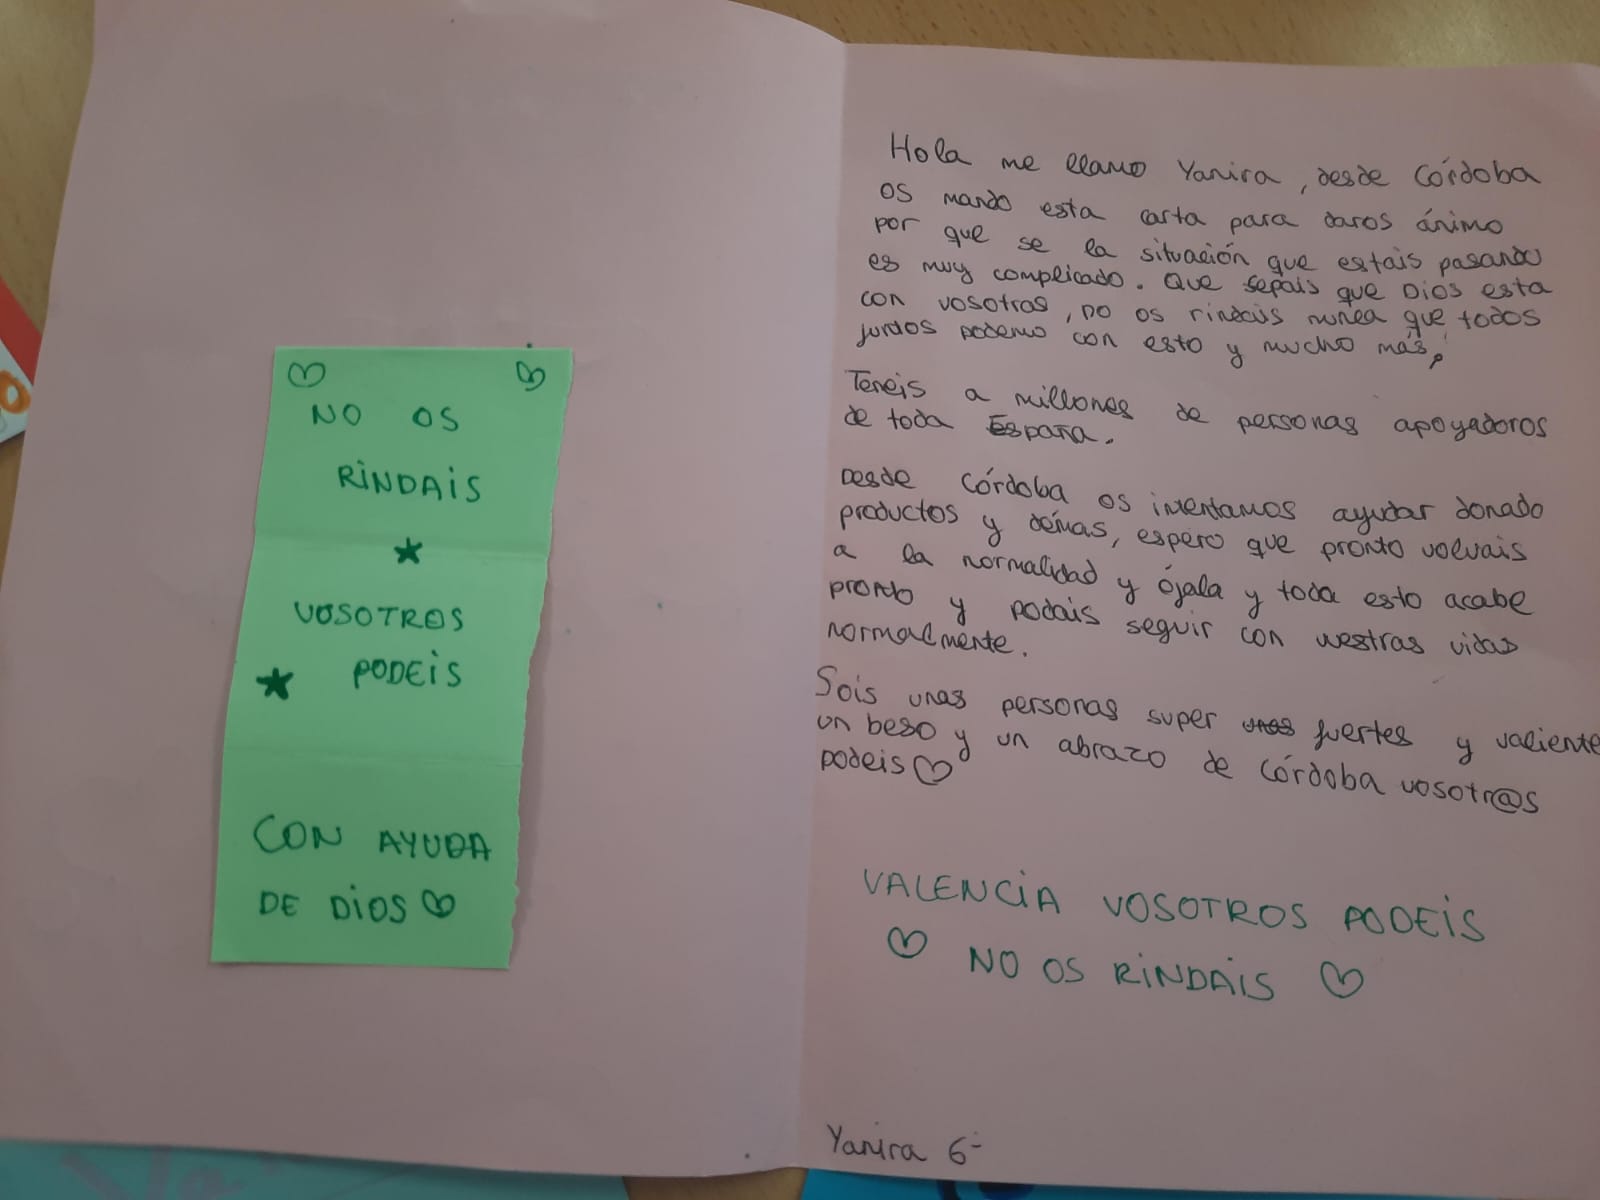 ♡ ♡
NO OS
RINDAIS
★
VOSOTROS
★ PODEIS
CON AYUDA
DE DIOS ♡
Hola me llamo Yanira, desde Córdoba
os mando esta carta para daros ánimo
por que se la situación que estais pasando
es muy complicado. Que sepais que Dios esta
con vosotros, no os rindais nunca que todos
juntos podemo con esto y mucho más,
Teneis a millones de personas apoyadoros
de toda España.
Desde Córdoba os intentamos ayudar donado
productos y démas, espero que pronto volvais
a la normalidad y ójala y toda esto acabe
pronto y podais seguir con vuestras vidas
normalmente.
Sois unas personas super fuertes y valiente
un beso y un abrazo de Córdoba vosotr@s
podeis ♡
VALENCIA VOSOTROS PODEIS
♡ NO OS RINDAIS ♡
Yanira 6-